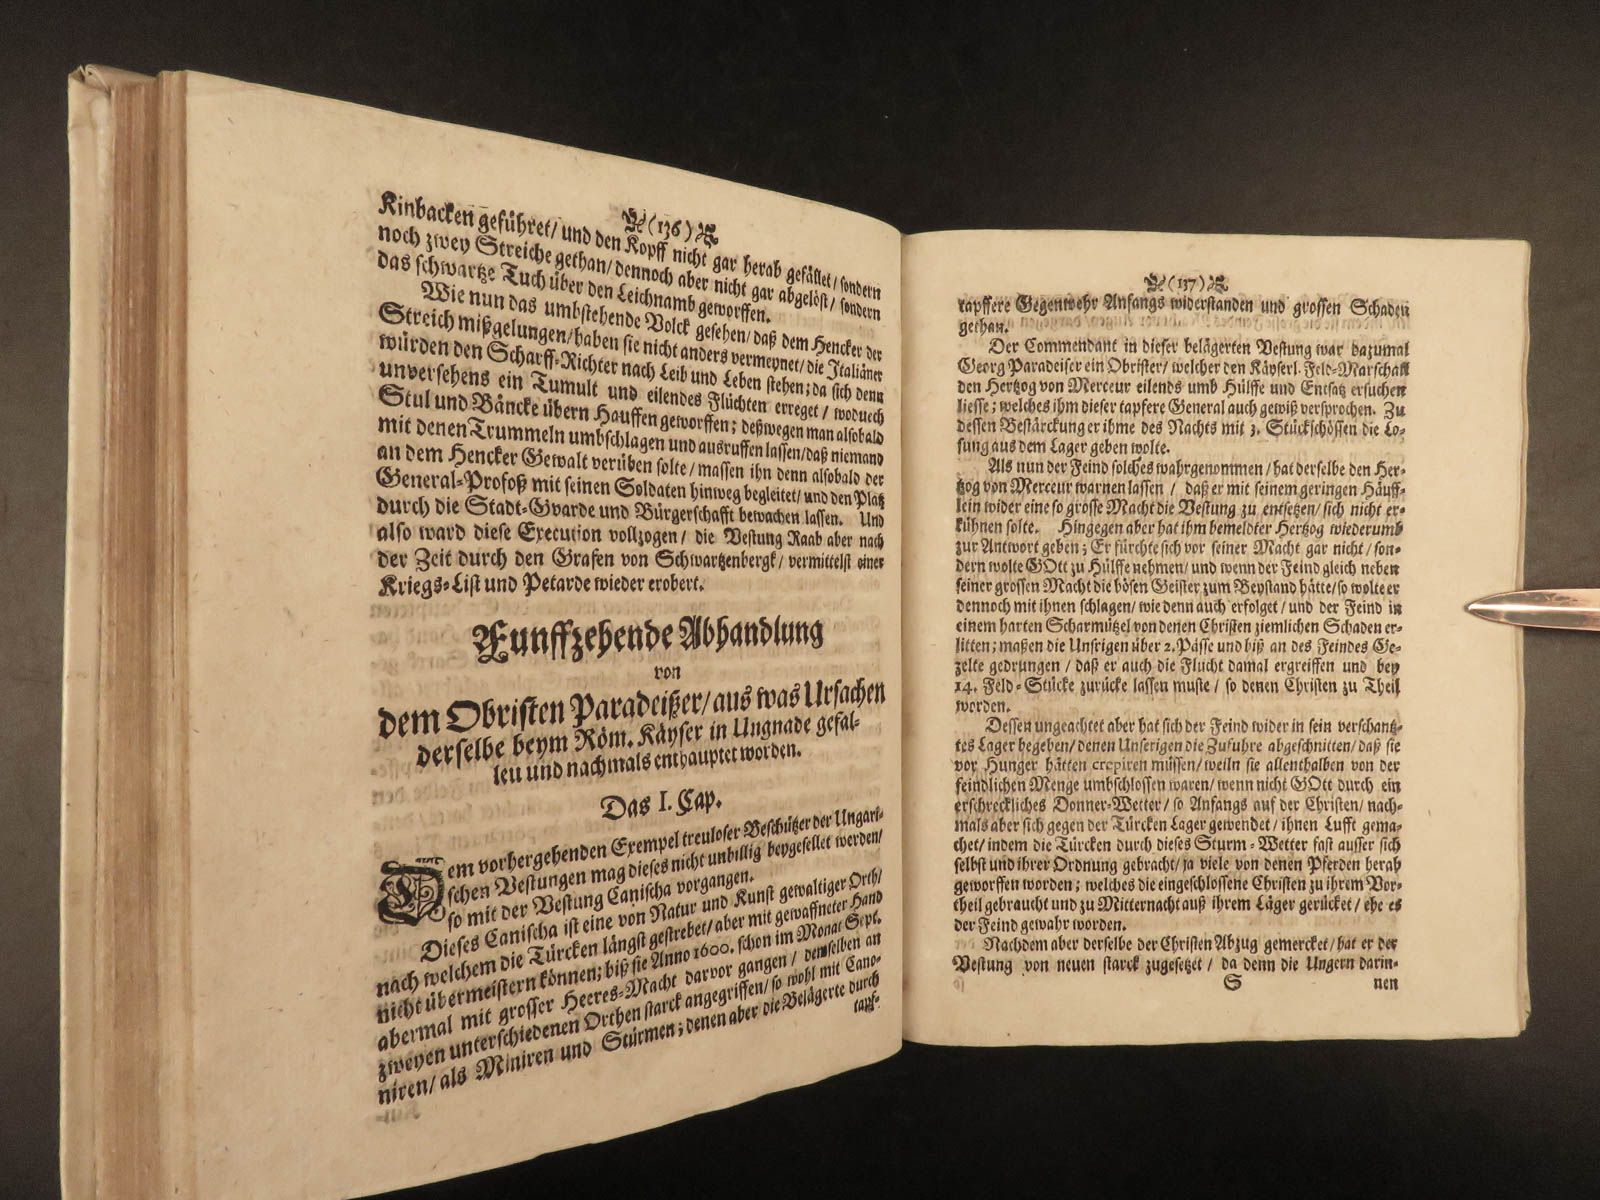 (136)
Kinbacken geführet/ und den Kopff nicht gar herab gefället/ sondern
noch zwey Streiche gethan/ dennoch aber nicht gar abgelöst/ sondern
das schwartze Tuch über den Leichnamb geworffen.
Wie nun das umbstehende Volck gesehen/ daß dem Hencker der
Streich mißgelungen/ haben sie nicht anders vermeynet/ die Italiäner
würden den Scharff-Richter nach Leib und Leben stehen; da sich denn
unversehens ein Tumult und eilendes Flüchten erreget / woduech
Stul und Bäncke übern Hauffen geworffen; deßwegen man alsobald
mit denen Trummeln umbschlagen und ausruffen lassen/ daß niemand
an dem Hencker Gewalt verüben solte/ massen ihn denn alsobald der
General-Profoß mit seinen Soldaten hinweg begleitet/ und den Platz
durch die Stadt-Gvarde und Bürgerschafft bewachen lassen. Und
also ward diese Execution vollzogen/ die Vestung Raab aber nach
der Zeit durch den Grafen von Schwartzenbergk/ vermittelst einer
Kriegs-List und Petarde wieder erobert.
Funffzehende Abhandlung
von
dem Obristen Paradeißer/ aus was Ursachen
derselbe beym Röm. Käyser in Ungnade gefal-
leu und nachmals enthauptet worden.
Das I. Cap.
Dem vorhergehenden Exempel treuloser Beschützer der Ungari-
schen Vestungen mag dieses nicht unbillig beygesellet werden/
so mit der Vestung Canischa vorgangen.
Dieses Canischa ist eine von Natur und Kunst gewaltiger Orth/
nach welchem die Türcken längst gestrebet/ aber mit gewaffneter Hand
nicht übermeistern können; biß sie Anno 1600. schon im Monat Sept.
abermal mit grosser Heeres-Macht darvor gangen/ demselben an
zweyen unterschiedenen Orthen starck angegriffen/ so wohl mit Cano-
niren/ als Miniren und Stürmen; denen aber die Belägerte durch
tapf-
(137)
tapffere Gegenwehr Anfangs widerstanden und grossen Schaden
gethan.
Der Commendant in dieser belägerten Vestung war dazumal
Georg Paradeiser ein Obrister/ welcher den Käyserl. Feld-Marschall
den Hertzog von Merceur eilends umb Hülffe und Entsatz ersuchen
liesse; welches ihm dieser tapfere General auch gewiß versprochen. Zu
dessen Bestärckung er ihme des Nachts mit 3. Stückschössen die Lo-
sung aus dem Lager geben wolte.
Als nun der Feind solches wahrgenommen/ hat derselbe den Her-
tzog von Merceur warnen lassen / daß er mit seinem geringen Häuff-
lein wider eine so grosse Macht die Vestung zu entsetzen/ sich nicht er-
kühnen solte. Hingegen aber hat ihm bemeldter Hertzog wiederumb
zur Antwort geben; Er fürchte sich vor seiner Macht gar nicht/ son-
dern wolte GOtt zu Hülffe nehmen/ und wenn der Feind gleich neben
seiner grossen Macht die bösen Geister zum Beystand hätte/ so wolte er
dennoch mit ihnen schlagen/ wie denn auch erfolget/ und der Feind in
einem harten Scharmützel von denen Christen ziemlichen Schaden er-
litten; maßen die Unsrigen über 2. Pässe und biß an des Feindes Ge-
zelte gedrungen/ daß er auch die Flucht damal ergreiffen und bey
14. Feld-Stücke zurücke lassen muste/ so denen Christen zu Theil
worden.
Dessen ungeachtet aber hat sich der Feind wider in sein verschantz-
tes Lager begeben/ denen Unserigen die Zufuhre abgeschnitten/ daß sie
vor Hunger hätten crepiren müssen/ weiln sie allenthalben von der
feindlichen Menge umbschlossen waren/ wenn nicht GOtt durch ein
erschreckliches Donner-Wetter/ so Anfangs auf der Christen/ nach-
mals aber sich gegen der Türcken Lager gewendet/ ihnen Lufft gema-
chet/ indem die Türcken durch dieses Sturm-Wetter fast ausser sich
selbst und ihrer Ordnung gebracht/ ja viele von denen Pferden herab
geworffen worden; welches die eingeschlossene Christen zu ihrem Vor-
theil gebraucht und zu Mitternacht auß ihrem Läger gerücket/ ehe es
der Feind gewahr worden.
Nachdem aber derselbe der Christen Abzug gemercket/ hat er der
Vestung von neuen starck zugesetzet / da denn die Ungern darin-
S nen